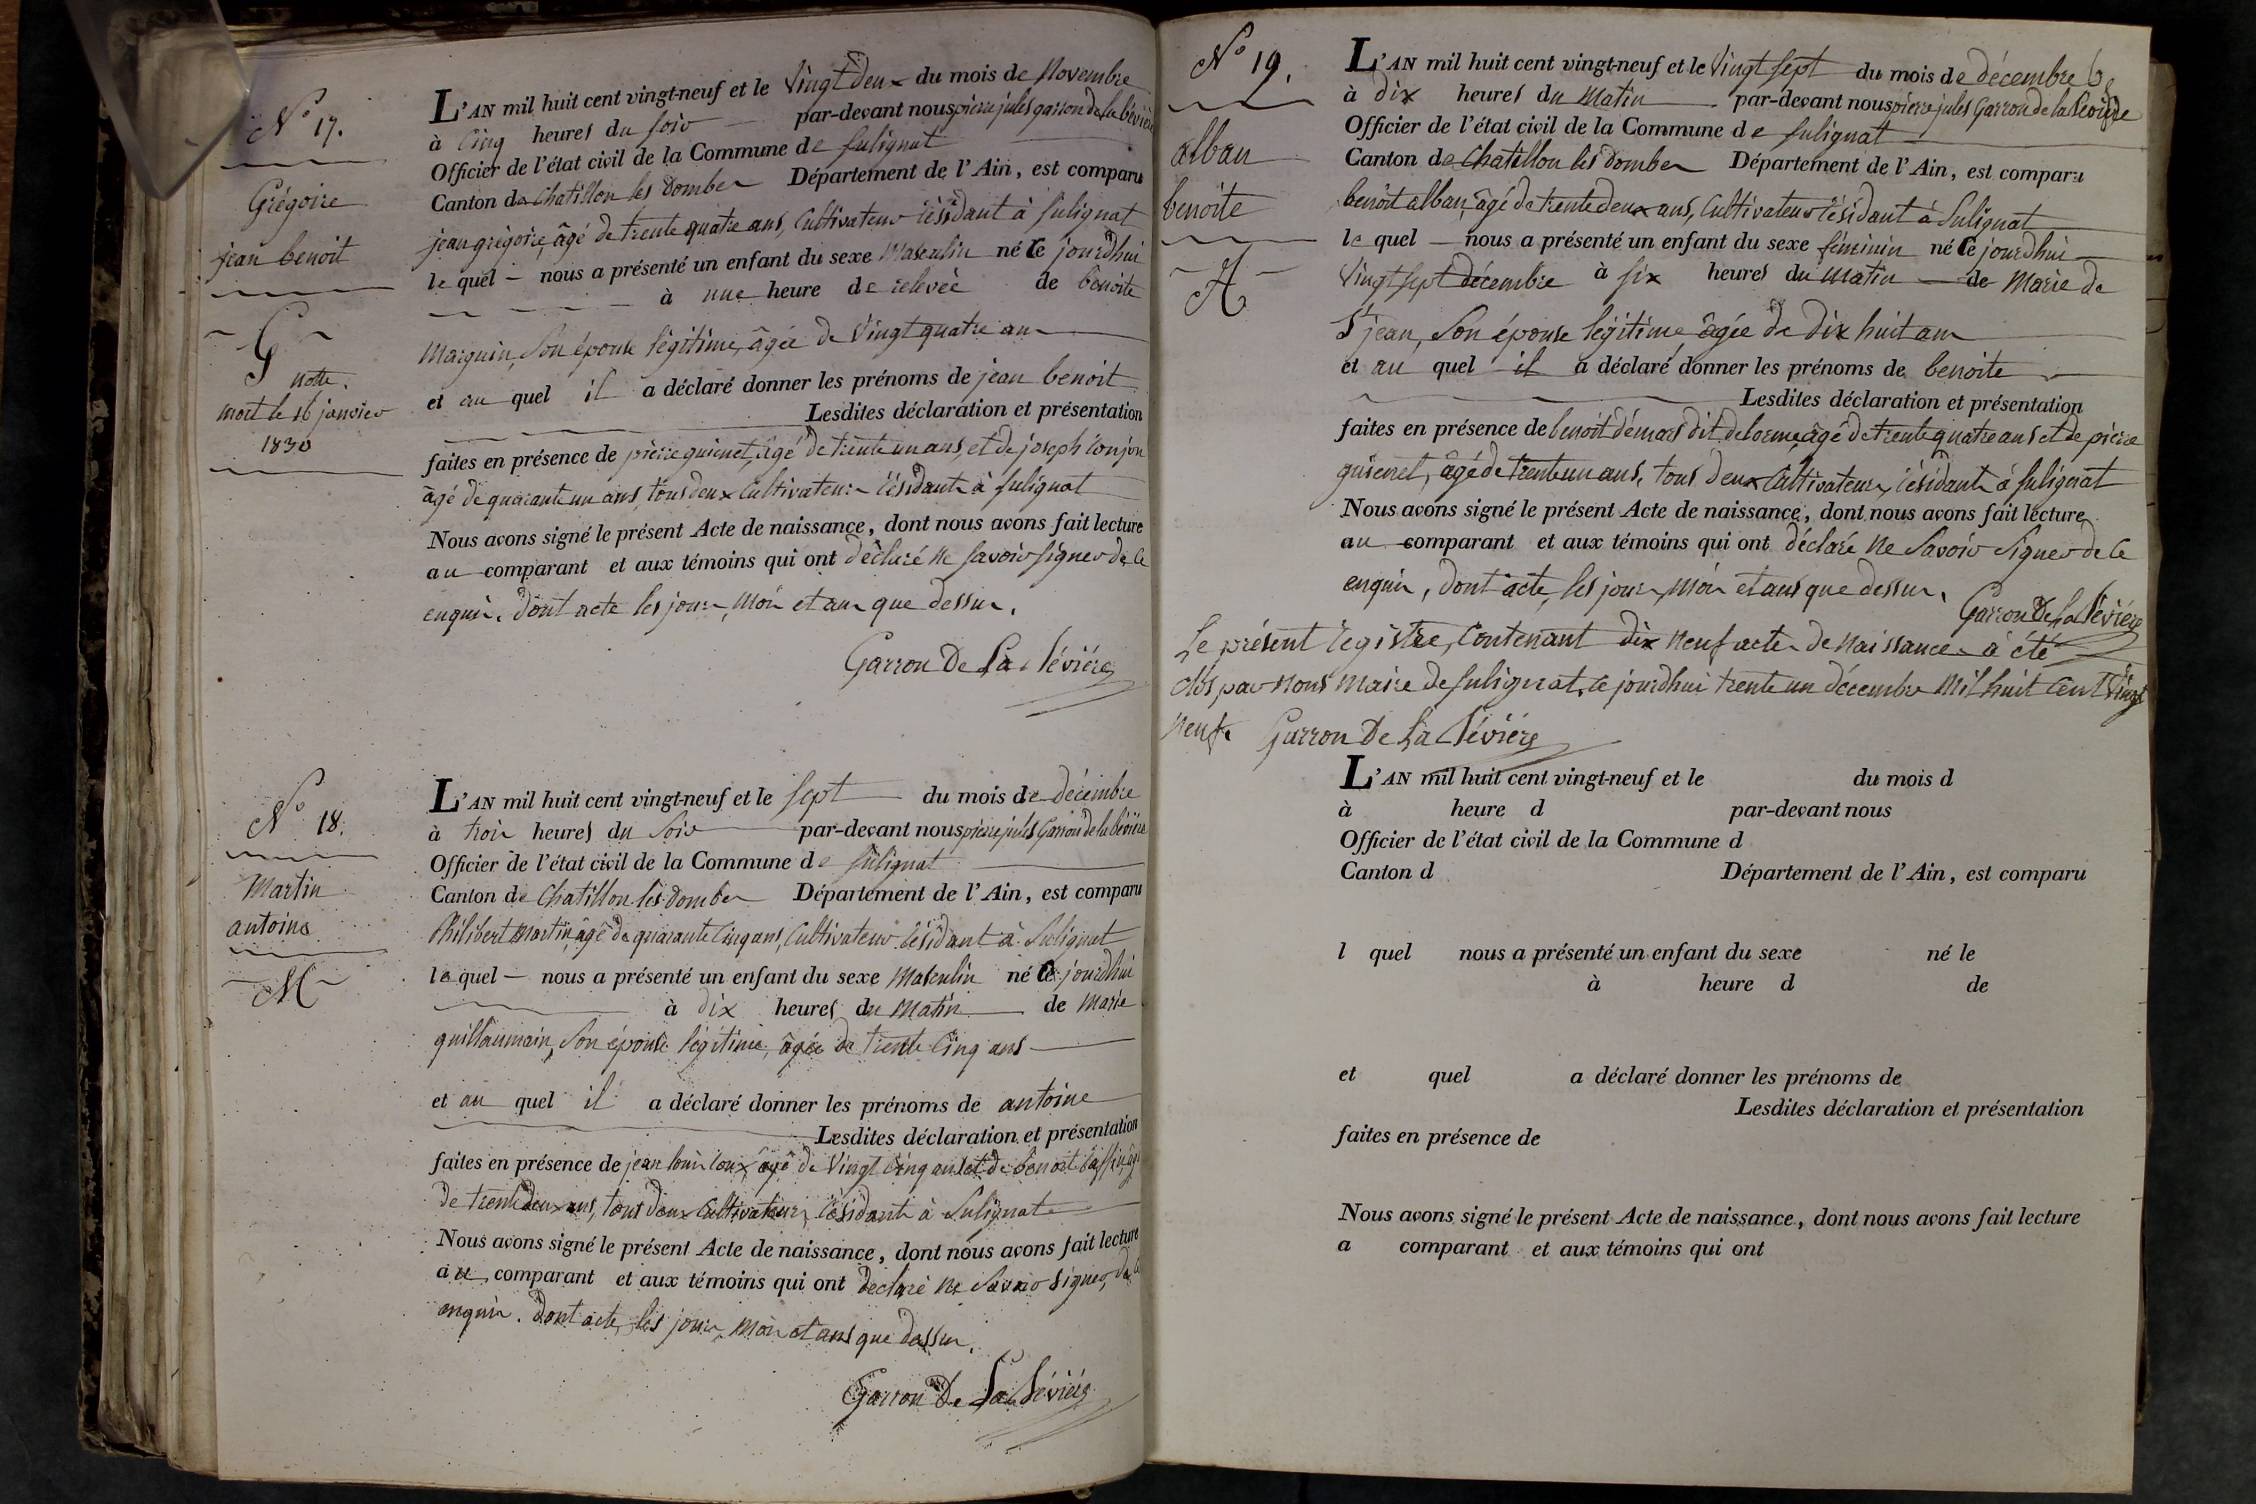 N° 17.
Grégoire
jean benoit
G
notte.
mort le 16 janvier
1830
L'AN mil huit cent vingt-neuf et le Vingt deux du mois de Novembre
à cinq heures du soir par-devant nous pierre jules garron de la bévière
Officier de l'état civil de la Commune de Sulignat
Canton de Chatillon les Dombes Département de l'Ain, est comparu
jean grégoire, âgé de trente quatre ans, Cultivateur résidant à Sulignat
le quel nous a présenté un enfant du sexe Masculin né Ce jourdhui
à une heure de relevée de benoite
Marguin, Son épouse légitime, âgée de Vingt quatre ans
et au quel il a déclaré donner les prénoms de jean benoit
Lesdites déclaration et présentation
faites en présence de pierre guienet, âgé de trente un ans, et de joseph
âgé de quarante un ans, tous deux Cultivateurs résidants à Sulignat
Nous avons signé le présent Acte de naissance, dont nous avons fait lecture
au comparant et aux témoins qui ont déclaré ne savoir signer de ce
enquis. Dont acte les jours, Mois et ans que dessus.
Garron De La Bévière
N° 18.
Martin
antoine
M
L'AN mil huit cent vingt-neuf et le Sept du mois de décembre
à trois heures du Soir par-devant nous pierre jules Garron de la bévière
Officier de l'état civil de la Commune de Sulignat
Canton de Chatillon les Dombes Département de l'Ain, est comparu
Philibert Martin, âgé de quarante Cinq ans, Cultivateur résidant à Sulignat
le quel nous a présenté un enfant du sexe Masculin né Ce jourdhui
à dix heures du Matin de Marie
guillaumain, Son épouse légitime, âgée de trente Cinq ans
et au quel il a déclaré donner les prénoms de antoine
Lesdites déclaration et présentation
faites en présence de jean louis âgé de Vingt Cinq ans et de benoit
de trente deux ans, tous deux Cultivateurs, résidants à Sulignat
Nous avons signé le présent Acte de naissance, dont nous avons fait lecture
au comparant et aux témoins qui ont declaré ne Savoir signer, de ce
enquis. Dont acte, les jours, Mois et ans que dessus.
Garron De La Bévière
N° 19.
alban
benoite
A
L'AN mil huit cent vingt-neuf et le Vingt sept du mois de décembre
à dix heures du Matin par-devant nous pierre jules Garron de la bévière
Officier de l'état civil de la Commune de Sulignat
Canton de Chatillon les Dombes Département de l'Ain, est comparu
benoit alban, âgé de trente deux ans, Cultivateur résidant à Sulignat
le quel nous a présenté un enfant du sexe féminin né Ce jourdhui
Vingt sept décembre à six heures du matin de Marie de
St jean, Son épouse légitime, âgée de Dix huit ans
et au quel il a déclaré donner les prénoms de benoite
Lesdites déclaration et présentation
faites en présence de benoit démars dit delorme, âgé de trente quatre ans et de pierre
guienet, âgé de trente un ans, tous deux Cultivateurs, résidants à Sulignat
Nous avons signé le présent Acte de naissance, dont nous avons fait lecture
au comparant et aux témoins qui ont déclaré ne Savoir Signer de Ce
enquis, Dont acte, les jours, Mois et ans que dessus.
Garron De La Bévière
Le présent registre, Contenant dix neuf actes de Naissances à été
Clos, par nous Maire de Sulignat, ce jourdhui trente un décembre Mil huit Cent Vingt
Neuf. Garron De La Bévière
L'AN mil huit cent vingt-neuf et le du mois d
à heure d par-devant nous
Officier de l'état civil de la Commune d
Canton d Département de l'Ain, est comparu
l quel nous a présenté un enfant du sexe né le
à heure d de
et quel a déclaré donner les prénoms de
Lesdites déclaration et présentation
faites en présence de
Nous avons signé le présent Acte de naissance, dont nous avons fait lecture
a comparant et aux témoins qui ont